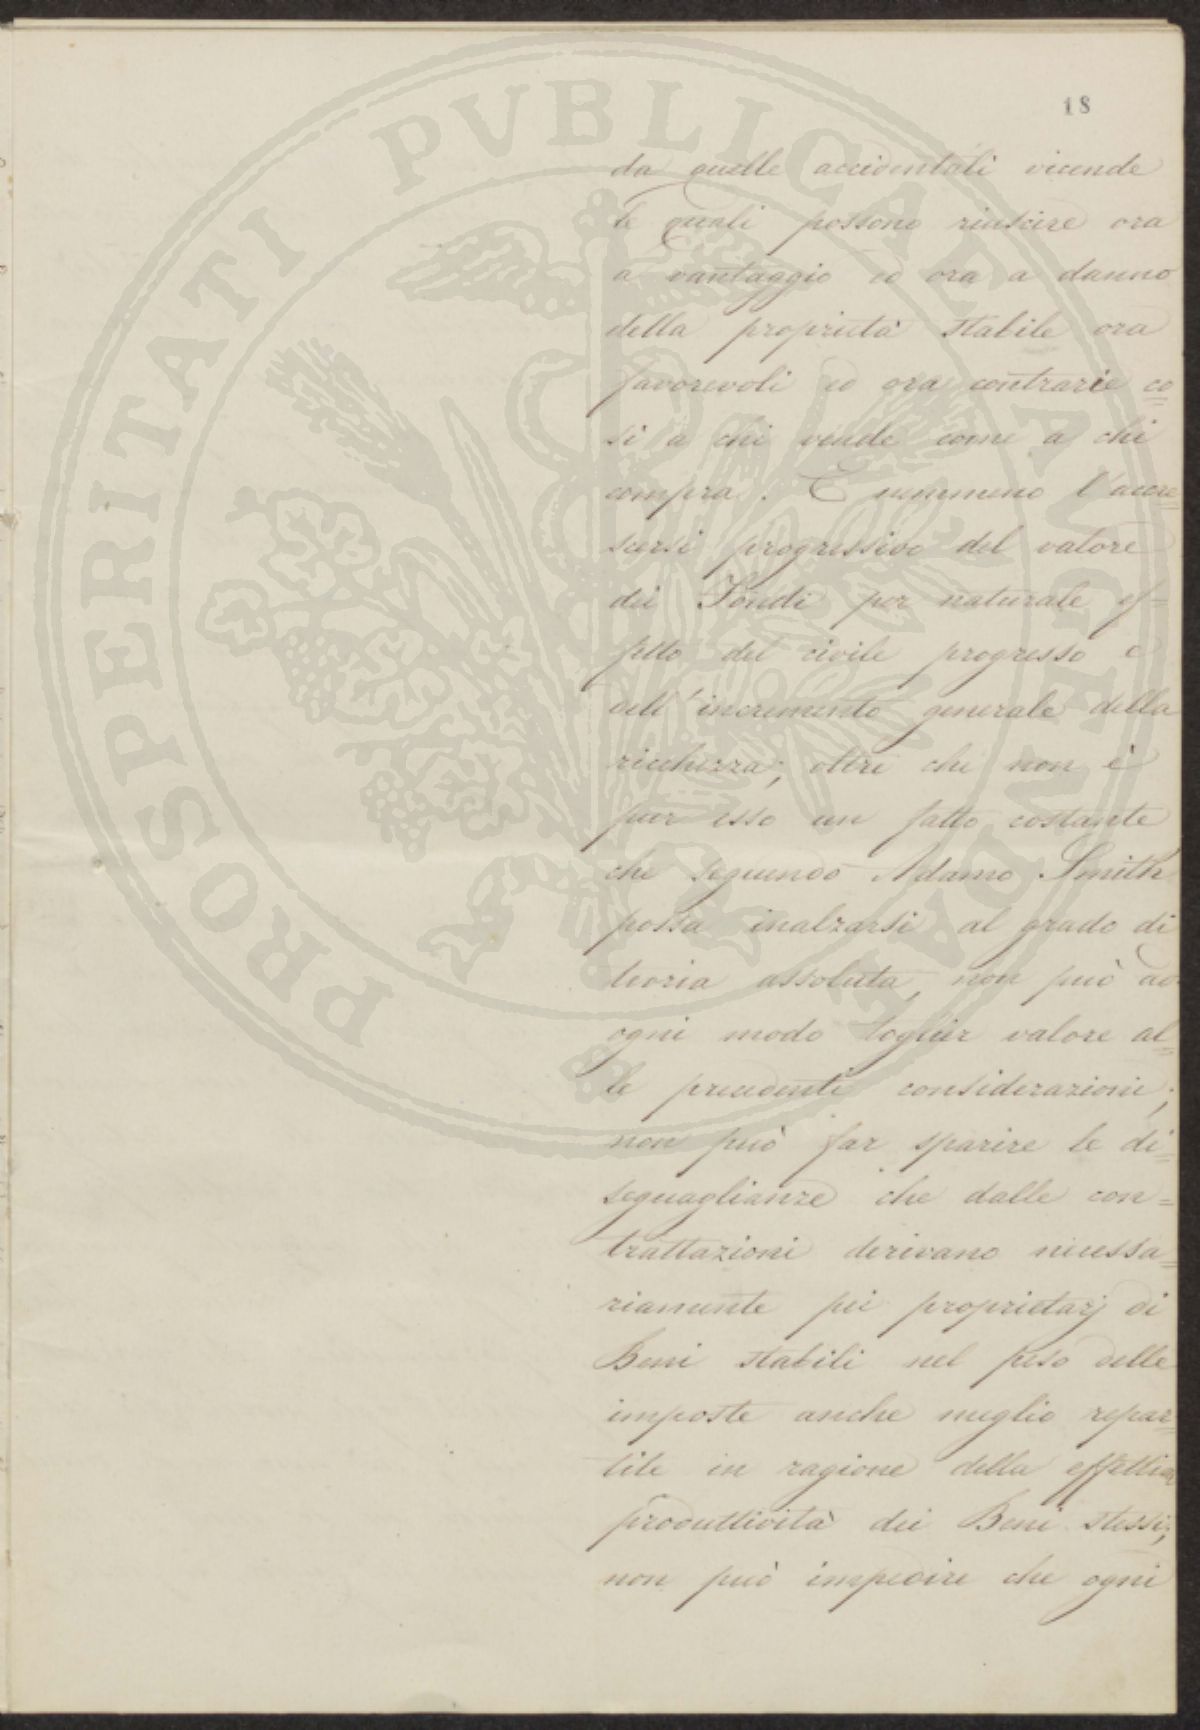 PROSPERITATI PVBLICAE AVGENDAE
18
da quelle accidentali vicende
le quali possono riuscire ora
a vantaggio ed ora a danno
della proprietà stabile ora
favorevoli ed ora contrarie co=
sì a chi vende come a chi
compra. E nemmeno l'accre=
scersi progressivo del valore
dei Fondi per naturale ef=
fetto del civile progresso e
dell'incremento generale della
ricchezza; oltre che non è
pur esso un fatto costante
che seguendo Adamo Smith
possa inalzarsi al grado di
teoria assoluta, non può ad
ogni modo toglier valore al=
le precedenti considerazioni;
non può far sparire le di=
seguaglianze che dalle con=
trattazioni derivano necessa=
riamente pei proprietarj di
Beni stabili nel peso delle
imposte anche meglio repar=
tite in ragione della effettiva
produttività dei Beni stessi;
non può impedire che ogni